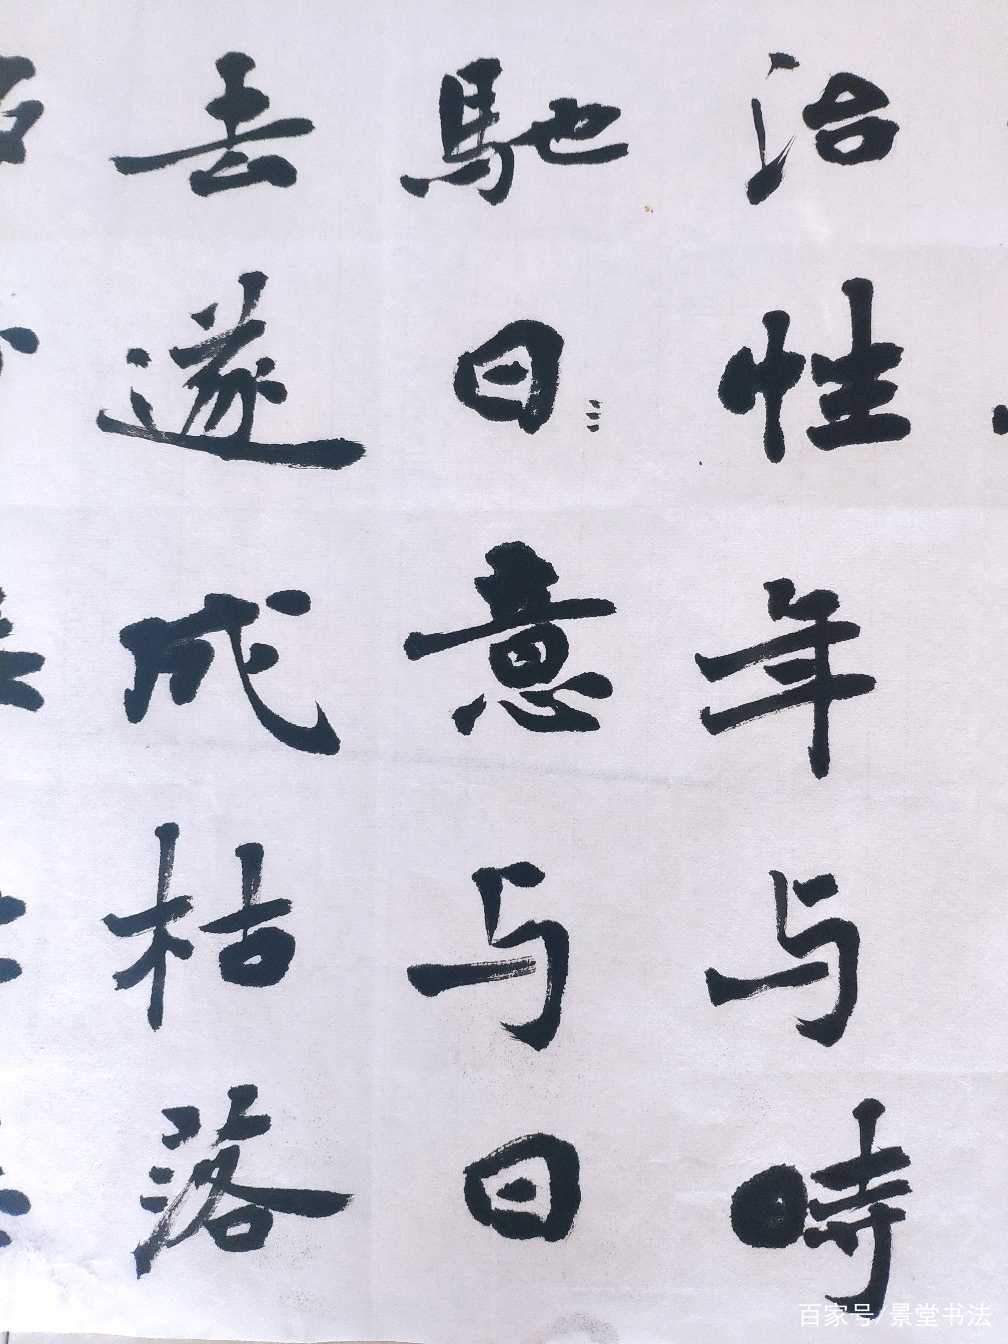 治性年与時
馳日意与日
去遂成枯落
百家号/景堂书法